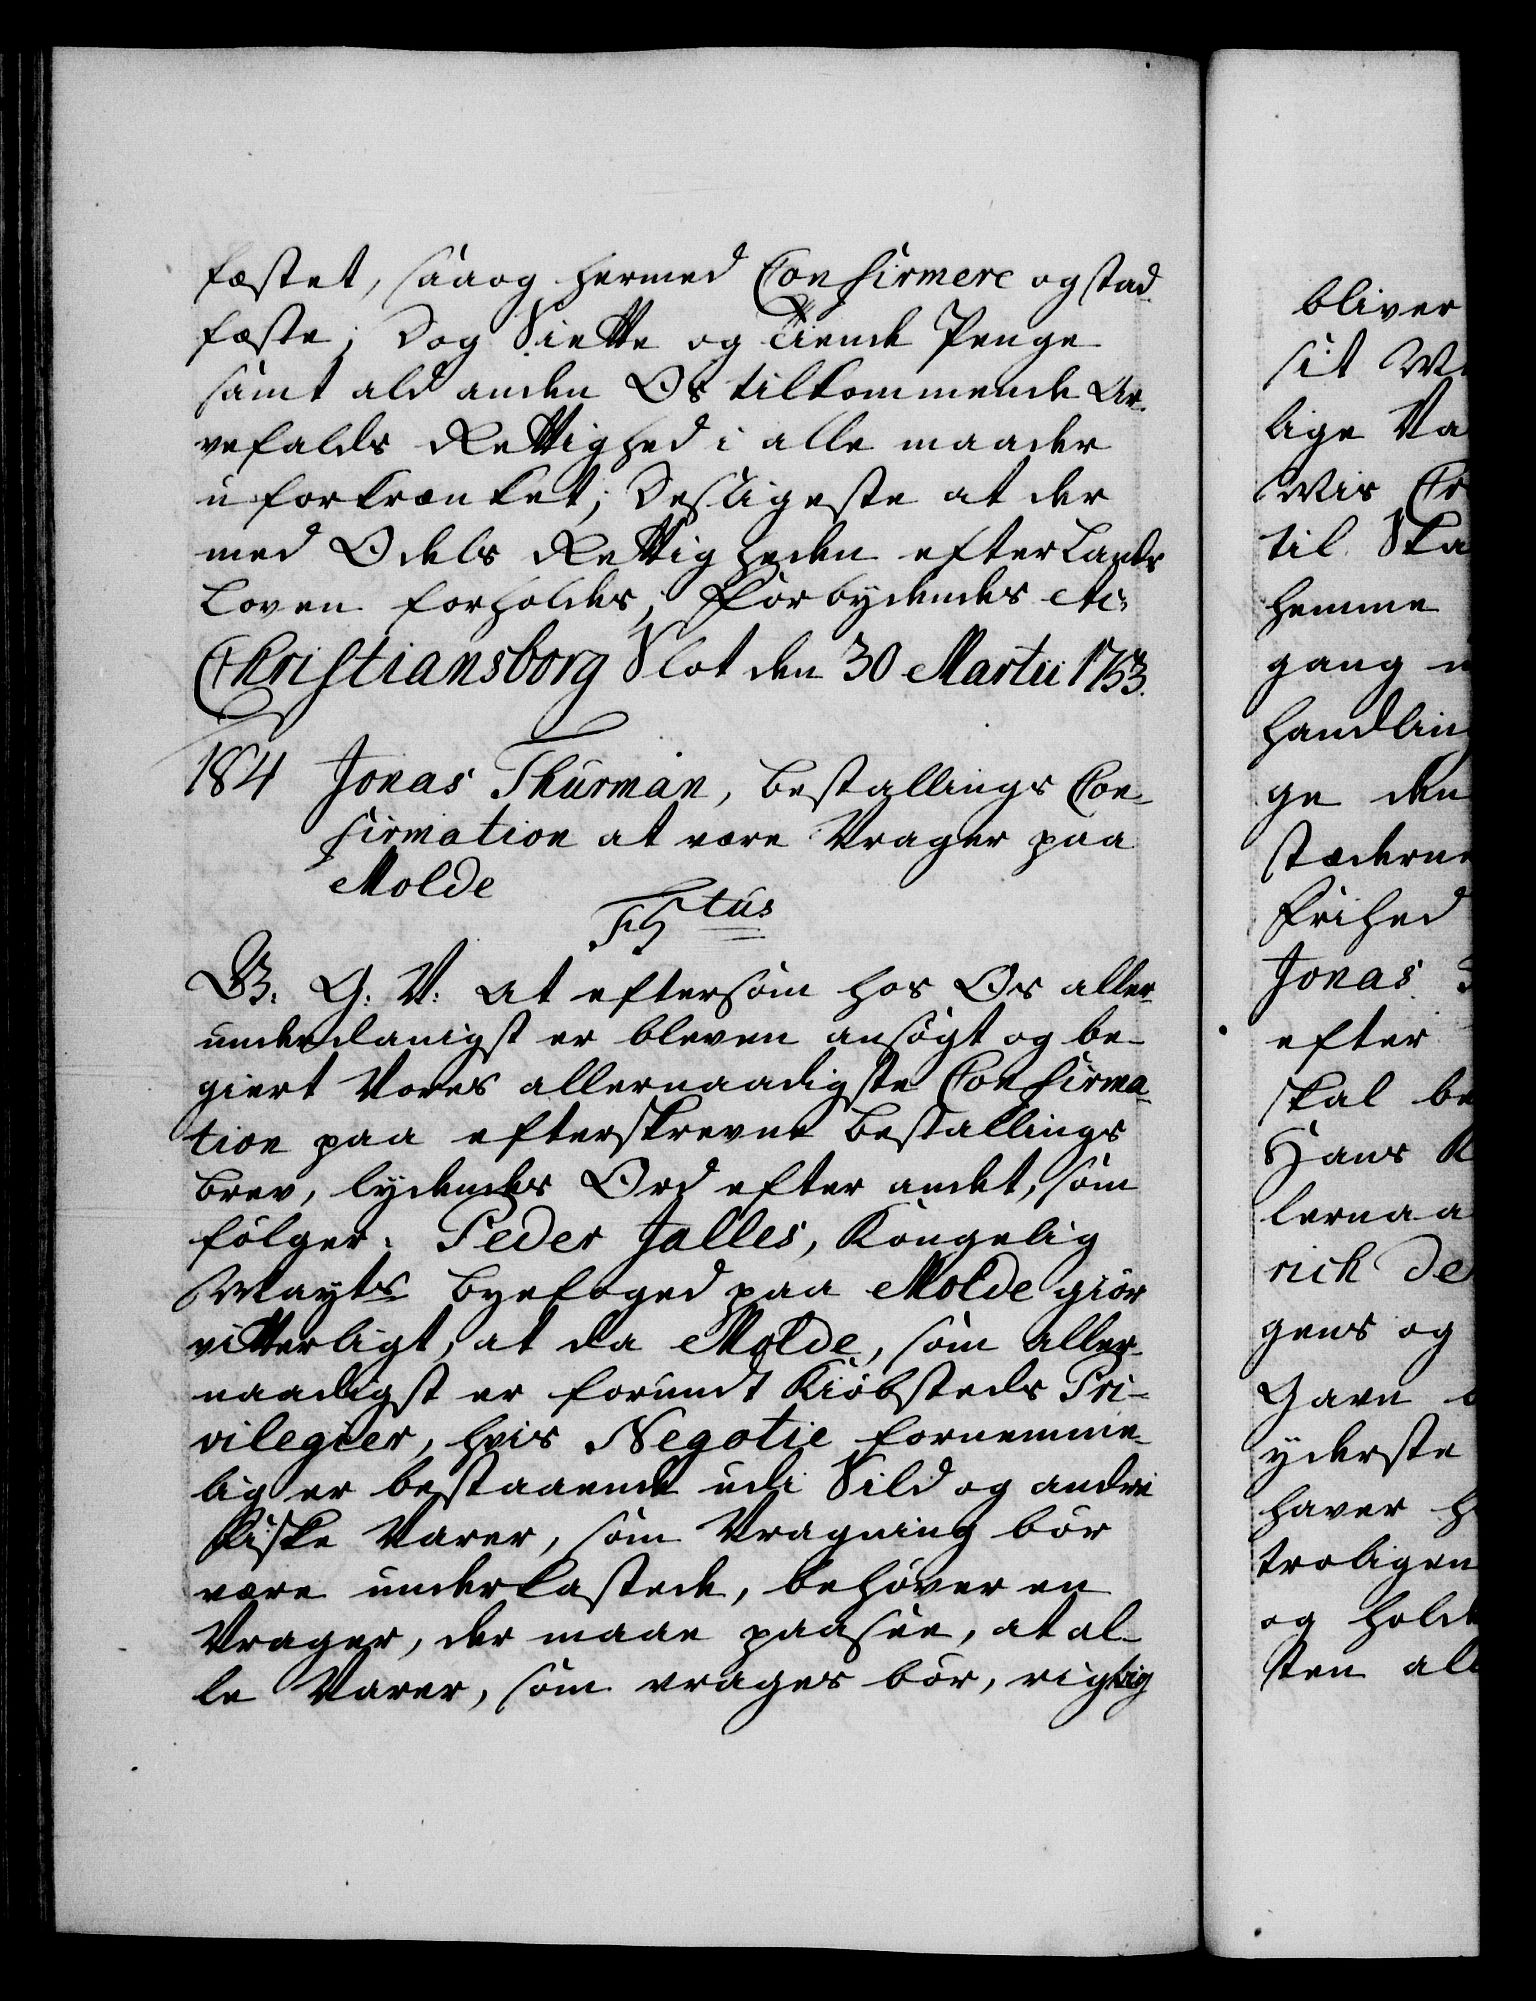 fæstet, saa og hermed Confirmere og stad-
fæste; Dog Siette og Tiende Penge
samt ald anden Os tilkommende Ar-
vefalds Rettighed i alle maader
uforkrænket; Desligeste at der
med Odels Rettigheden efter Lands
Loven forholdes; Forbydendes etc:
Christiansborg Slot den 30 Martii 1753.
184 Jonas Thurman, Bestallings Con-
firmation at være Vrager paa
Molde
F5tus
G. G. V. At eftersom hos Os aller-
underdanigst er bleven ansøgt og be-
giert Vores allernaadigste Confirma-
tion paa efterskrevne Bestallings
Brev, lydendes Ord efter andet, som
følger: Peder Jalles, Kongelig
Mayts Byefoged paa Molde giør
vitterligt, at da Molde, som aller-
naadigst er forundt Kiøbsteds Pri-
vilegier, hvis Negotie fornemme-
lig er bestaaende udi Sild og andre
Fiske Varer, som Vragning bør
være underkastede, behøver en
Vrager, der maae paasee, at al-
le Varer, som vrages bør, rigtig
bliver
sit
lige Va
Wis
til Ska
hemme
gang
handlin
ge den
stæderne
Frihed
Jonas
efter
skal be
Hans K
lernaa
rich De
gens og
Gavn
yderste
haver
troligen
og holde
sten all